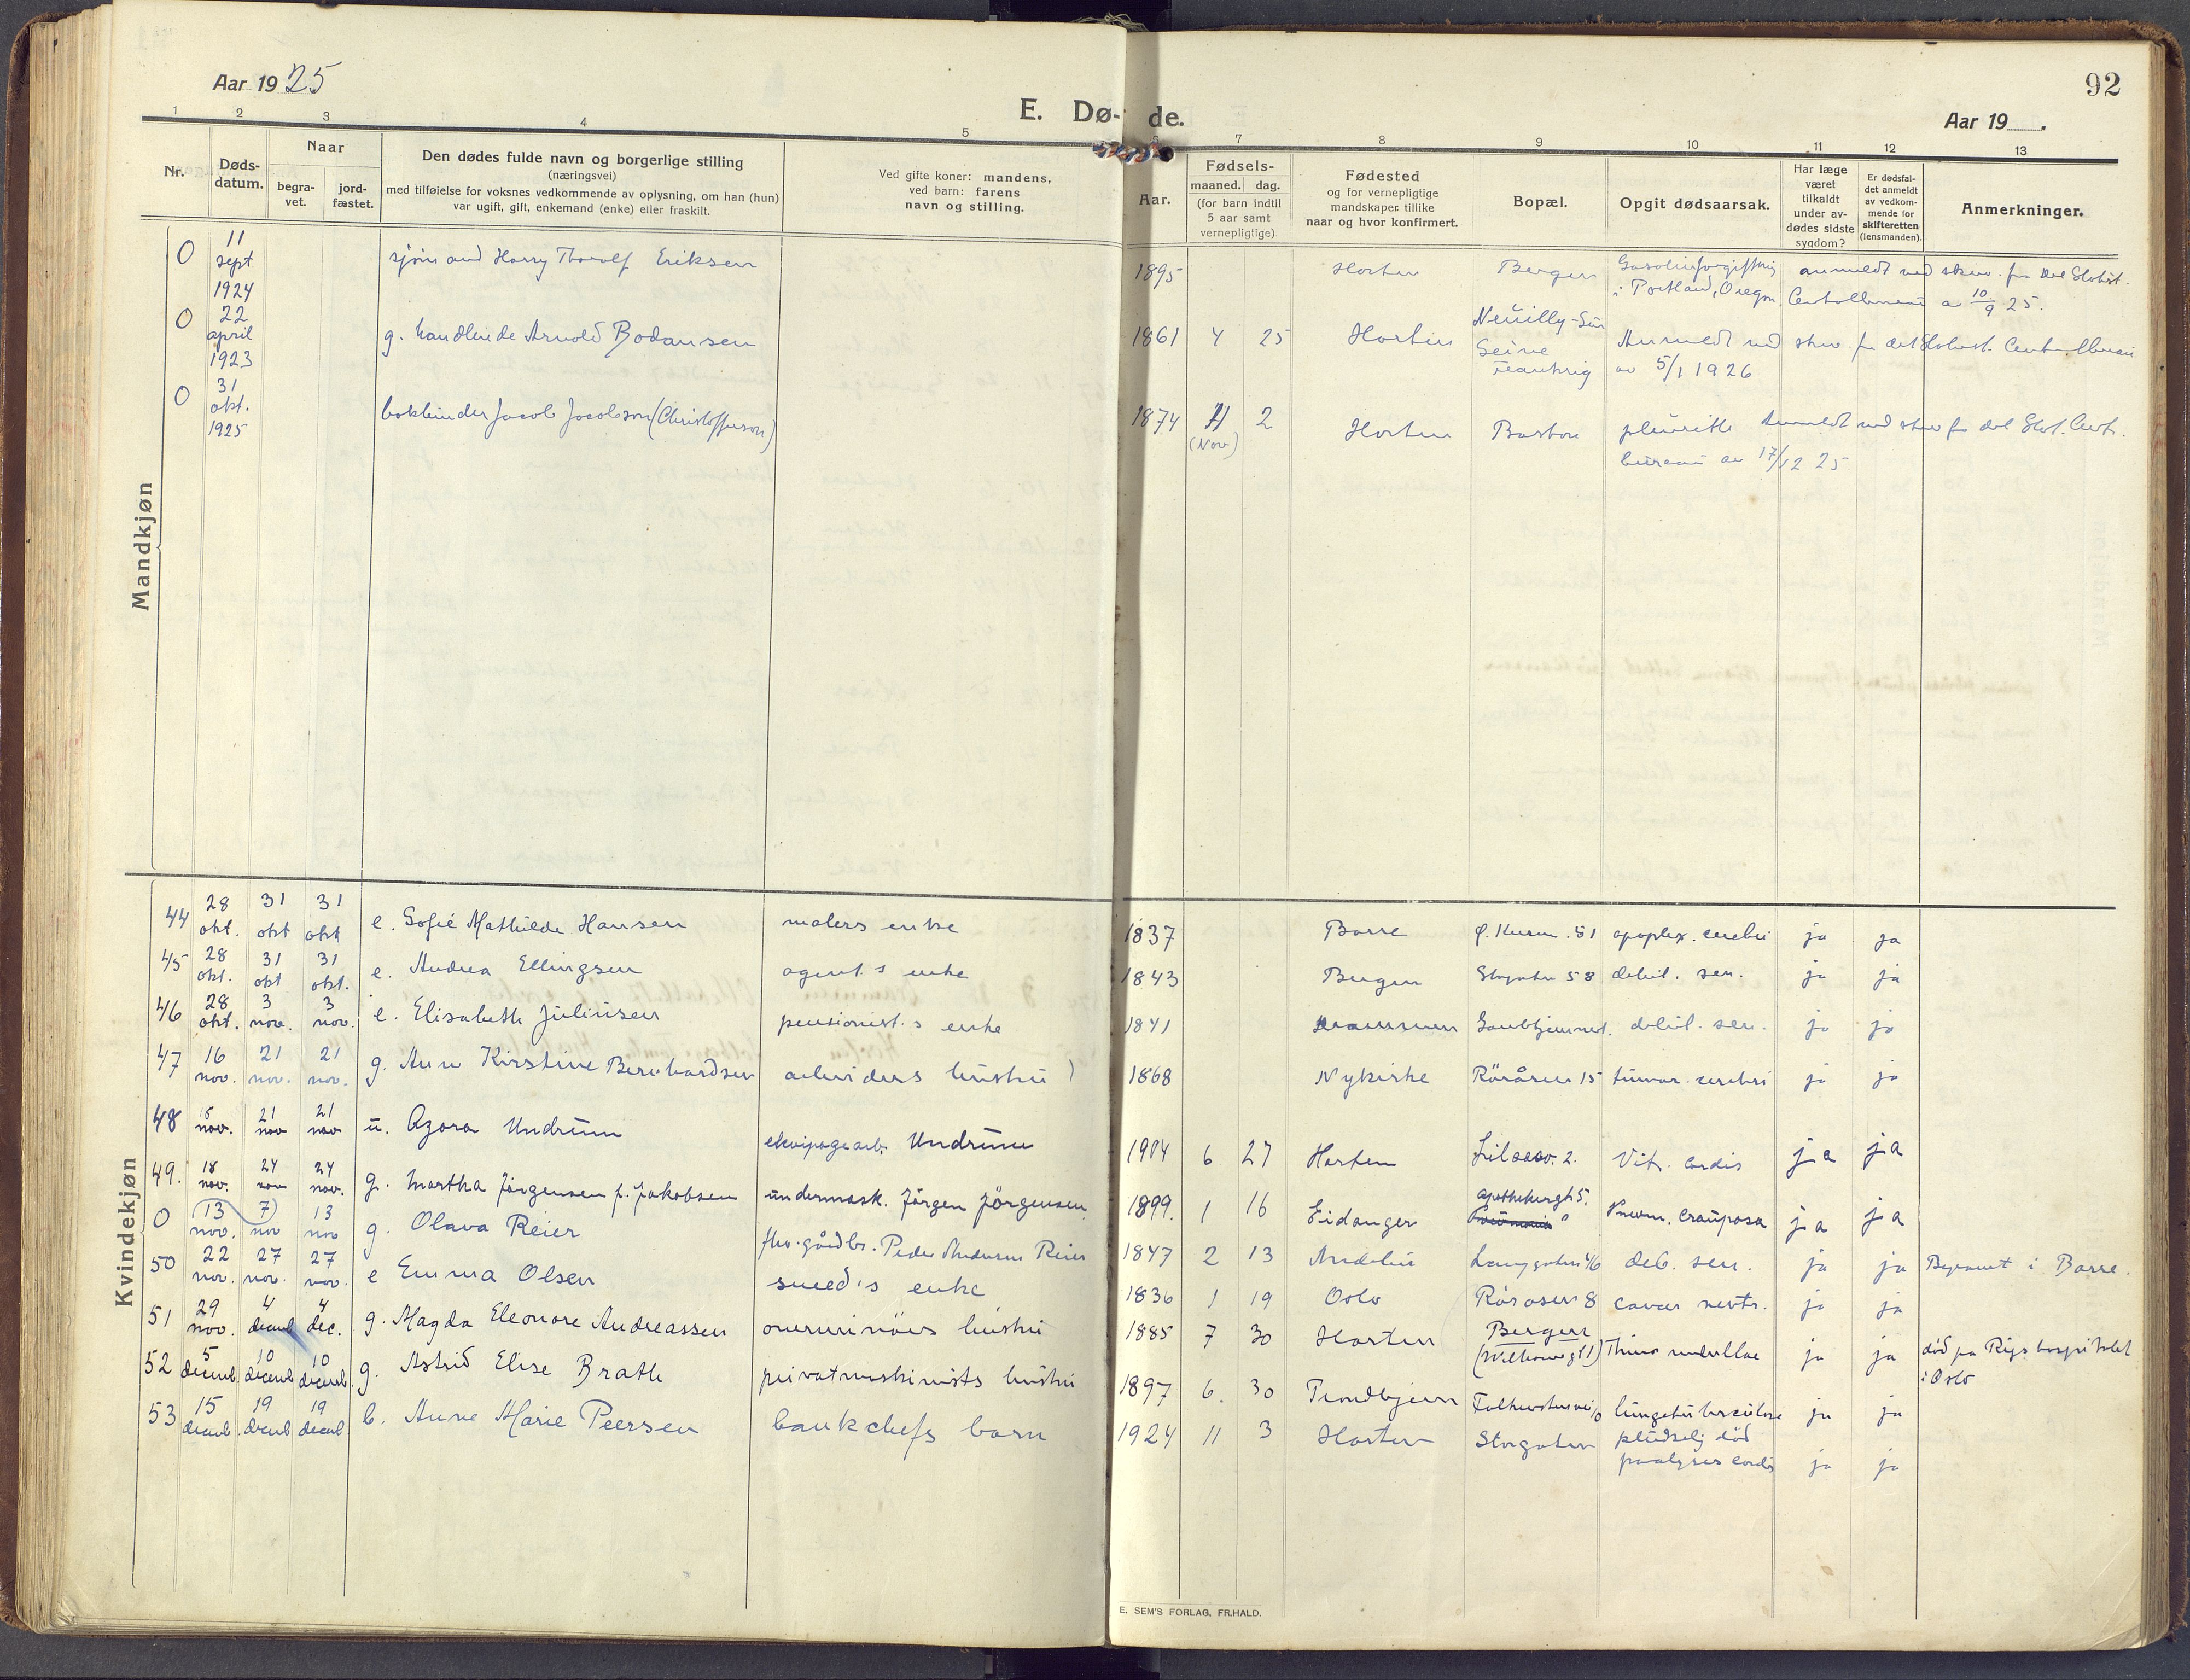 Aar 1925
E. Dø- de.
Aar 19 .
92
1 2 3 4 5 6 7 8 9 10 11 12 13
Nr.
Døds-
datum.
Naar
begra-
vet.
jord-
fæstet.
Den dødes fulde navn og borgerlige stilling
(næringsvei)
med tilføielse for voksnes vedkommende av oplysning, om han (hun)
var ugift, gift, enkemand (enke) eller fraskilt.
Ved gifte koner: mandens,
ved barn: farens
navn og stilling.
Aar.
Fødsels-
maaned. dag.
(for barn indtil
5 aar samt
vernepligtige).
Fødested
og for vernepligtige
mandskaper tillike
naar og hvor konfirmert.
Bopæl.
Opgit dødsaarsak.
Har læge
været
tilkaldt
under av-
dødes sidste
sygdom?
Er dødsfal-
det anmeldt
av vedkom-
mende for
skifteretten
(lensmanden).
Anmerkninger.
Mandkjøn
0 11 sept 1924 Harry Thorolf Eriksen 1895 Horten Bergen i Portland, Oregon 10/9 25.
0 22 april 1923 g. handlende Arnold Bodausen 1861 4 25 Horten Neuilly-Sur Seine Anmeldt av 5/1 1926
0 31 okt. 1925 bokbinder Jacob Jacobson (Christofferson) 1874 11 (Nov) 2 Horten Boston pleuritt Anmeldt bureau av 17/12 25
Kvindekjøn
44 28 okt. 31 okt 31 okt e. Sofie Mathilde Hansen malers enke 1837 Borre 51 apoplex. cerebri ja ja
45 28 okt. 31 okt 31 okt. e. Andrea Ellingsen agent's enke 1843 Bergen Storgaten 58 debil. sen. ja ja
46 28 okt. 3 nov. 3 nov. e. Elisabeth Juliusen pensionist's enke 1841 debil. sen. ja ja
47 16 nov. 21 nov. 21 nov. g. Ann Kirstine Bernhardsen arbeiders hustru 1868 Nykirke Röråsen 15 tumor cerebri ja ja
48 15 nov. 21 nov 21 nov u. Agora Undrum ekvipagearb. Undrum 1904 6 27 Horten 2. Vit. cordis ja ja
49. 18 nov. 24 nov 24 nov. g. Martha Jörgensen f. Jakobsen undermask. Jörgen Jörgensen 1899. 1 16 Eidanger apothekergt 5. Pneum. crouposa ja ja
0 13 nov. 7 nov 13 nov g. Olava Reier fhv. gårdbr. Peder Andersen Reier 1847 2 13 Langgaten deb. sen. ja ja i Borre.
50 22 nov. 27 nov. 27 nov. e Emma Olsen smed's enke 1836 1 19 Oslo Röråsen 8 cancer ventr. ja ja
51 29 nov. 4 decmb 4 dec. g. Magda Eleonore Andreassen hustru 1885 7 30 Horten Bergen ja ja död på Rigshospitalet i Oslo
52 5 decemb. 10 decemb 10 decemb. g. Astrid Elise Brath privatmaskinists hustru 1897 6. 30 Trondhjem lungetuberculose ja ja
53 15 decemb. 19 decmb 19 decemb b. Anne Marie Peersen bankchefs barn 1924 11 3 Horten Storgaten pludselig död paralysis cordis ja ja
E. SEM'S FORLAG, FR.HALD.